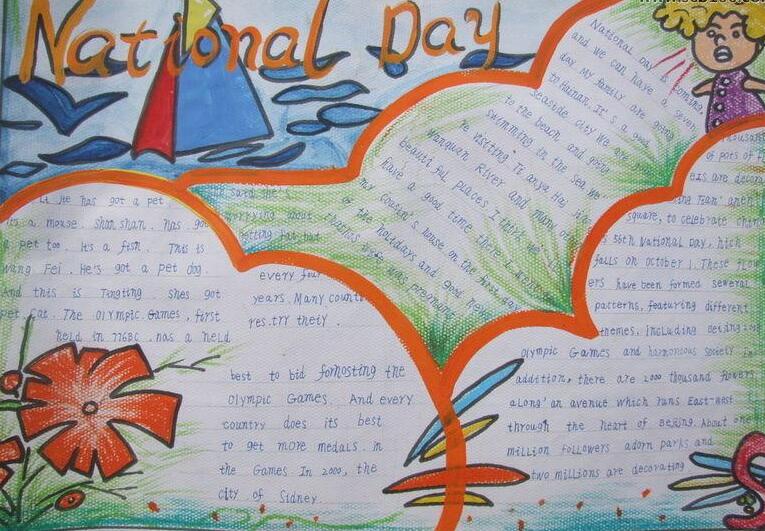 National Day
National Day is coming,
and we can have a seven
day. My family are going
to Hainan. It's a good
seaside city we are
to the beach and going
swimming in the sea. We
re visiting Tianya Hai
Wanquan River and many
beautiful places I think
have a good time there
my cousin's house on the first day
of the holidays and good news
wife was pregnant
He has got a pet
a mouse. Shan shan. has got
a pet too. It's a fish. This is
Wang Fei. He's got a pet dog.
And this is Tingting. Shes got
pet cat. The Olympic. Games, first
held in 776BC .has a held
said
worrying about
getting fat, but
every four
years. Many count
res.try theiy .
best to bid fornosting the
Olympic Games. And every
country does its best
to get more medals. in
the Games In 2000, the
city of Sidney.
thousand
of pots of
ers are decora
square, to celebrate
s 56th National Day, hich
falls on october 1. These flow
ers have been formed several
patterns, featuring different
themes, including
Olympic Games and harmonious society In
addition, there are 2000 thousand flowers
along' an avenue which runs East-West
through the heart of Beijing. About one
million followers adorn parks and
two millions are decorating